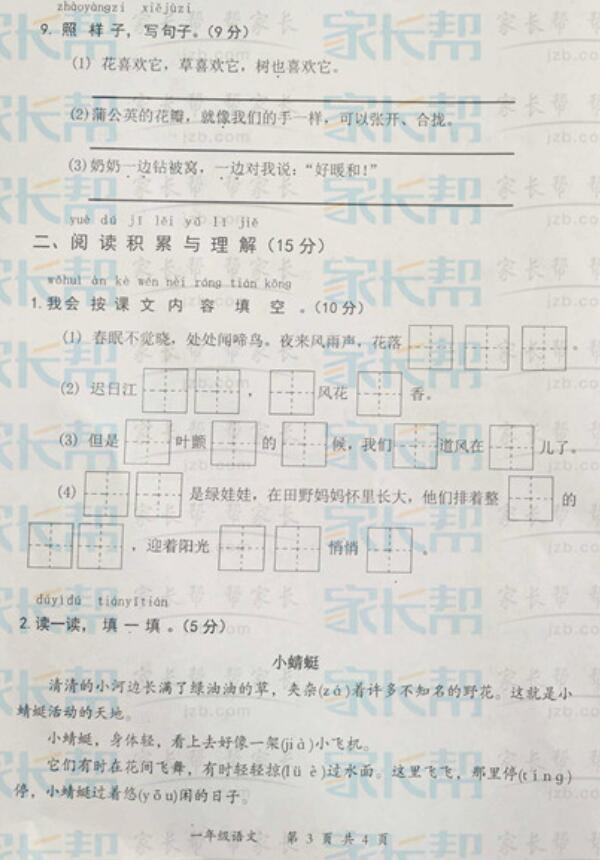 zhàoyàngzi xiějùzi
9. 照 样 子，写句子。(9 分)
(1) 花喜欢它，草喜欢它，树也喜欢它。
(2)蒲公英的花瓣，就像我们的手一样，可以张开、合拢。
(3)奶奶一边钻被窝，一边对我说：“好暖和！”
yuè dú jī lěi yǔ lǐ jiě
二、阅 读 积 累 与 理 解 (15 分)
wǒhuì àn kè wén nèi róng tián kōng
1.我会 按 课 文 内 容 填 空 。(10 分)
(1) 春眠不觉晓，处处闻啼鸟。夜来风雨声，花落 。
(2) 迟日江 ， 风花 香。
(3) 但是 叶颤 的 候，我们 道风在 儿了。
(4) 是绿娃娃，在田野妈妈怀里长大，他们排着整 的
，迎着阳光 悄悄 。
dúyìdú tiányìtián
2.读一读，填 一 填 。(5 分)
小蜻蜓
清清的小河边长满了绿油油的草，夹杂(zá)着许多不知名的野花。这就是小
蜻蜓活动的天地。
小蜻蜓，身体轻，看上去好像一架(jià)小飞机。
它们有时在花间飞舞，有时轻轻掠(lüè)过水面。这里飞飞，那里停(tíng)
停，小蜻蜓过着悠(yōu)闲的日子。
一年级语文 第 3 页 共 4 页
家长帮
jzb.com